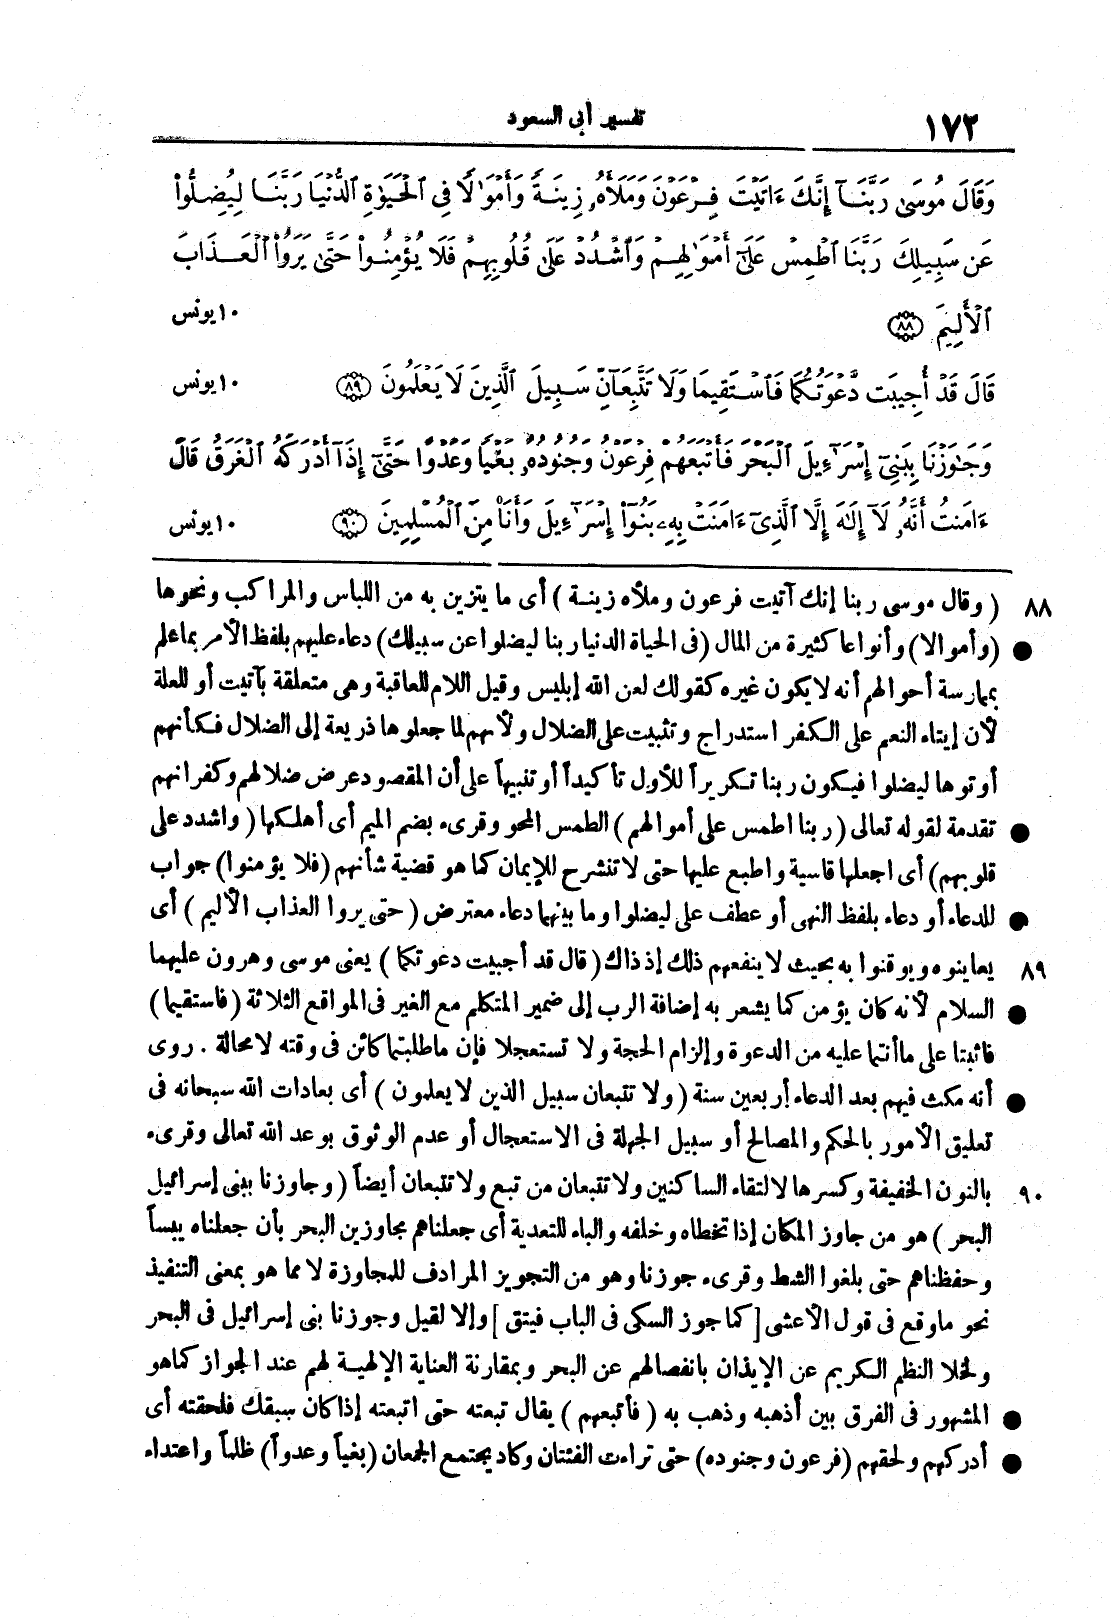 ١٧٢
تفسير أبى السعود
وَقَالَ مُوسَىٰ رَبَّنَآ إِنَّكَ ءَاتَيْتَ فِرْعَوْنَ وَمَلَأَهُۥ زِينَةً وَأَمْوَٰلًا فِى ٱلْحَيَوٰةِ ٱلدُّنْيَا رَبَّنَا لِيُضِلُّوا۟
عَن سَبِيلِكَ رَبَّنَا ٱطْمِسْ عَلَىٰٓ أَمْوَٰلِهِمْ وَٱشْدُدْ عَلَىٰ قُلُوبِهِمْ فَلَا يُؤْمِنُوا۟ حَتَّىٰ يَرَوُا۟ ٱلْعَذَابَ
ٱلْأَلِيمَ ﴿٨٨﴾ ١٠ يونس
قَالَ قَدْ أُجِيبَت دَّعْوَتُكُمَا فَٱسْتَقِيمَا وَلَا تَتَّبِعَآنِّ سَبِيلَ ٱلَّذِينَ لَا يَعْلَمُونَ ﴿٨٩﴾ ١٠ يونس
وَجَٰوَزْنَا بِبَنِىٓ إِسْرَٰٓءِيلَ ٱلْبَحْرَ فَأَتْبَعَهُمْ فِرْعَوْنُ وَجُنُودُهُۥ بَغْيًا وَعَدْوًا حَتَّىٰٓ إِذَآ أَدْرَكَهُ ٱلْغَرَقُ قَالَ
ءَامَنتُ أَنَّهُۥ لَآ إِلَٰهَ إِلَّا ٱلَّذِىٓ ءَامَنَتْ بِهِۦ بَنُوٓا۟ إِسْرَٰٓءِيلَ وَأَنَا۠ مِنَ ٱلْمُسْلِمِينَ ﴿٩٠﴾ ١٠ يونس
٨٨ ( وقال موسى ربنا إنك آتيت فرعون وملأه زينة ) أى ما يتزين به من اللباس والمراكب ونحوها
● (وأموالا) وأنواعا كثيرة من المال (فى الحياة الدنيا ربنا ليضلوا عن سبيلك) دعاء عليهم بلفظ الأمر بما علم
بممارسة أحوالهم أنه لا يكون غيره كقولك لعن الله إبليس وقيل اللام للعاقبة وهى متعلقة بآتيت أو للعلة
لأن إيتاء النعم على الكفر استدراج وتثبيت على الضلال ولأنهم لما جعلوها ذريعة إلى الضلال فكأنهم
أوتوها ليضلوا فيكون ربنا تكريراً للأول تأكيداً أو تنبيهاً على أن المقصود عرض ضلالهم وكفرانهم
● تقدمة لقوله تعالى ( ربنا اطمس على أموالهم ) الطمس المحو وقرىء بضم الميم أى أهلكها ( واشدد على
قلوبهم) أى اجعلها قاسية واطبع عليها حتى لا تنشرح للإيمان كما هو قضية شأنهم (فلا يؤمنوا) جواب
● للدعاء أو دعاء بلفظ النهى أو عطف على ليضلوا وما بينهما دعاء معترض ( حتى يروا العذاب الأليم ) أى
٨٩ يعاينوه ويوقنوا به بحيث لا ينفعهم ذلك إذ ذاك ( قال قد أجيبت دعوتكما ) يعنى موسى وهرون عليهما
● السلام لأنه كان يؤمن كما يشعر به إضافة الرب إلى ضمير المتكلم مع الغير فى المواقع الثلاثة (فاستقيما)
فاثبتا على ما أنتما عليه من الدعوة وإلزام الحجة ولا تستعجلا فإن ما طلبتما كائن فى وقته لا محالة . روى
● أنه مكث فيهم بعد الدعاء أربعين سنة ( ولا تتبعان سبيل الذين لا يعلمون ) أى بعادات الله سبحانه فى
تعليق الأمور بالحكم والمصالح أو سبيل الجهلة فى الاستعجال أو عدم الوثوق بوعد الله تعالى وقرىء
٩٠ بالنون الخفيفة وكسرها لالتقاء الساكنين ولا تتبعان من تبع ولا تتبعان أيضاً ( وجاوزنا ببنى إسرائيل
البحر ) هو من جاوز المكان إذا تخطاه وخلفه والباء للتعدية أى جعلناهم مجاوزين البحر بأن جعلناه يبساً
وحفظناهم حتى بلغوا الشط وقرىء جوزنا وهو من التجويز المرادف للمجاوزة لا مما هو بمعنى التنفيذ
نحو ما وقع فى قول الأعشى [ كما جوز السكى فى الباب فيتق ] وإلا لقيل وجوزنا بنى إسرائيل فى البحر
ولخلا النظم الكريم عن الإيذان بانفصالهم عن البحر وبمقارنة العناية الإلهية لهم عند الجواز كما هو
● المشهور فى الفرق بين أذهبه وذهب به ( فأتبعهم ) يقال تبعته حتى اتبعته إذا كان سبقك فلحقته أى
● أدركهم ولحقهم (فرعون وجنوده) حتى تراءت الفئتان وكاد يجتمع الجمعان (بغياً وعدواً) ظلماً واعتداء